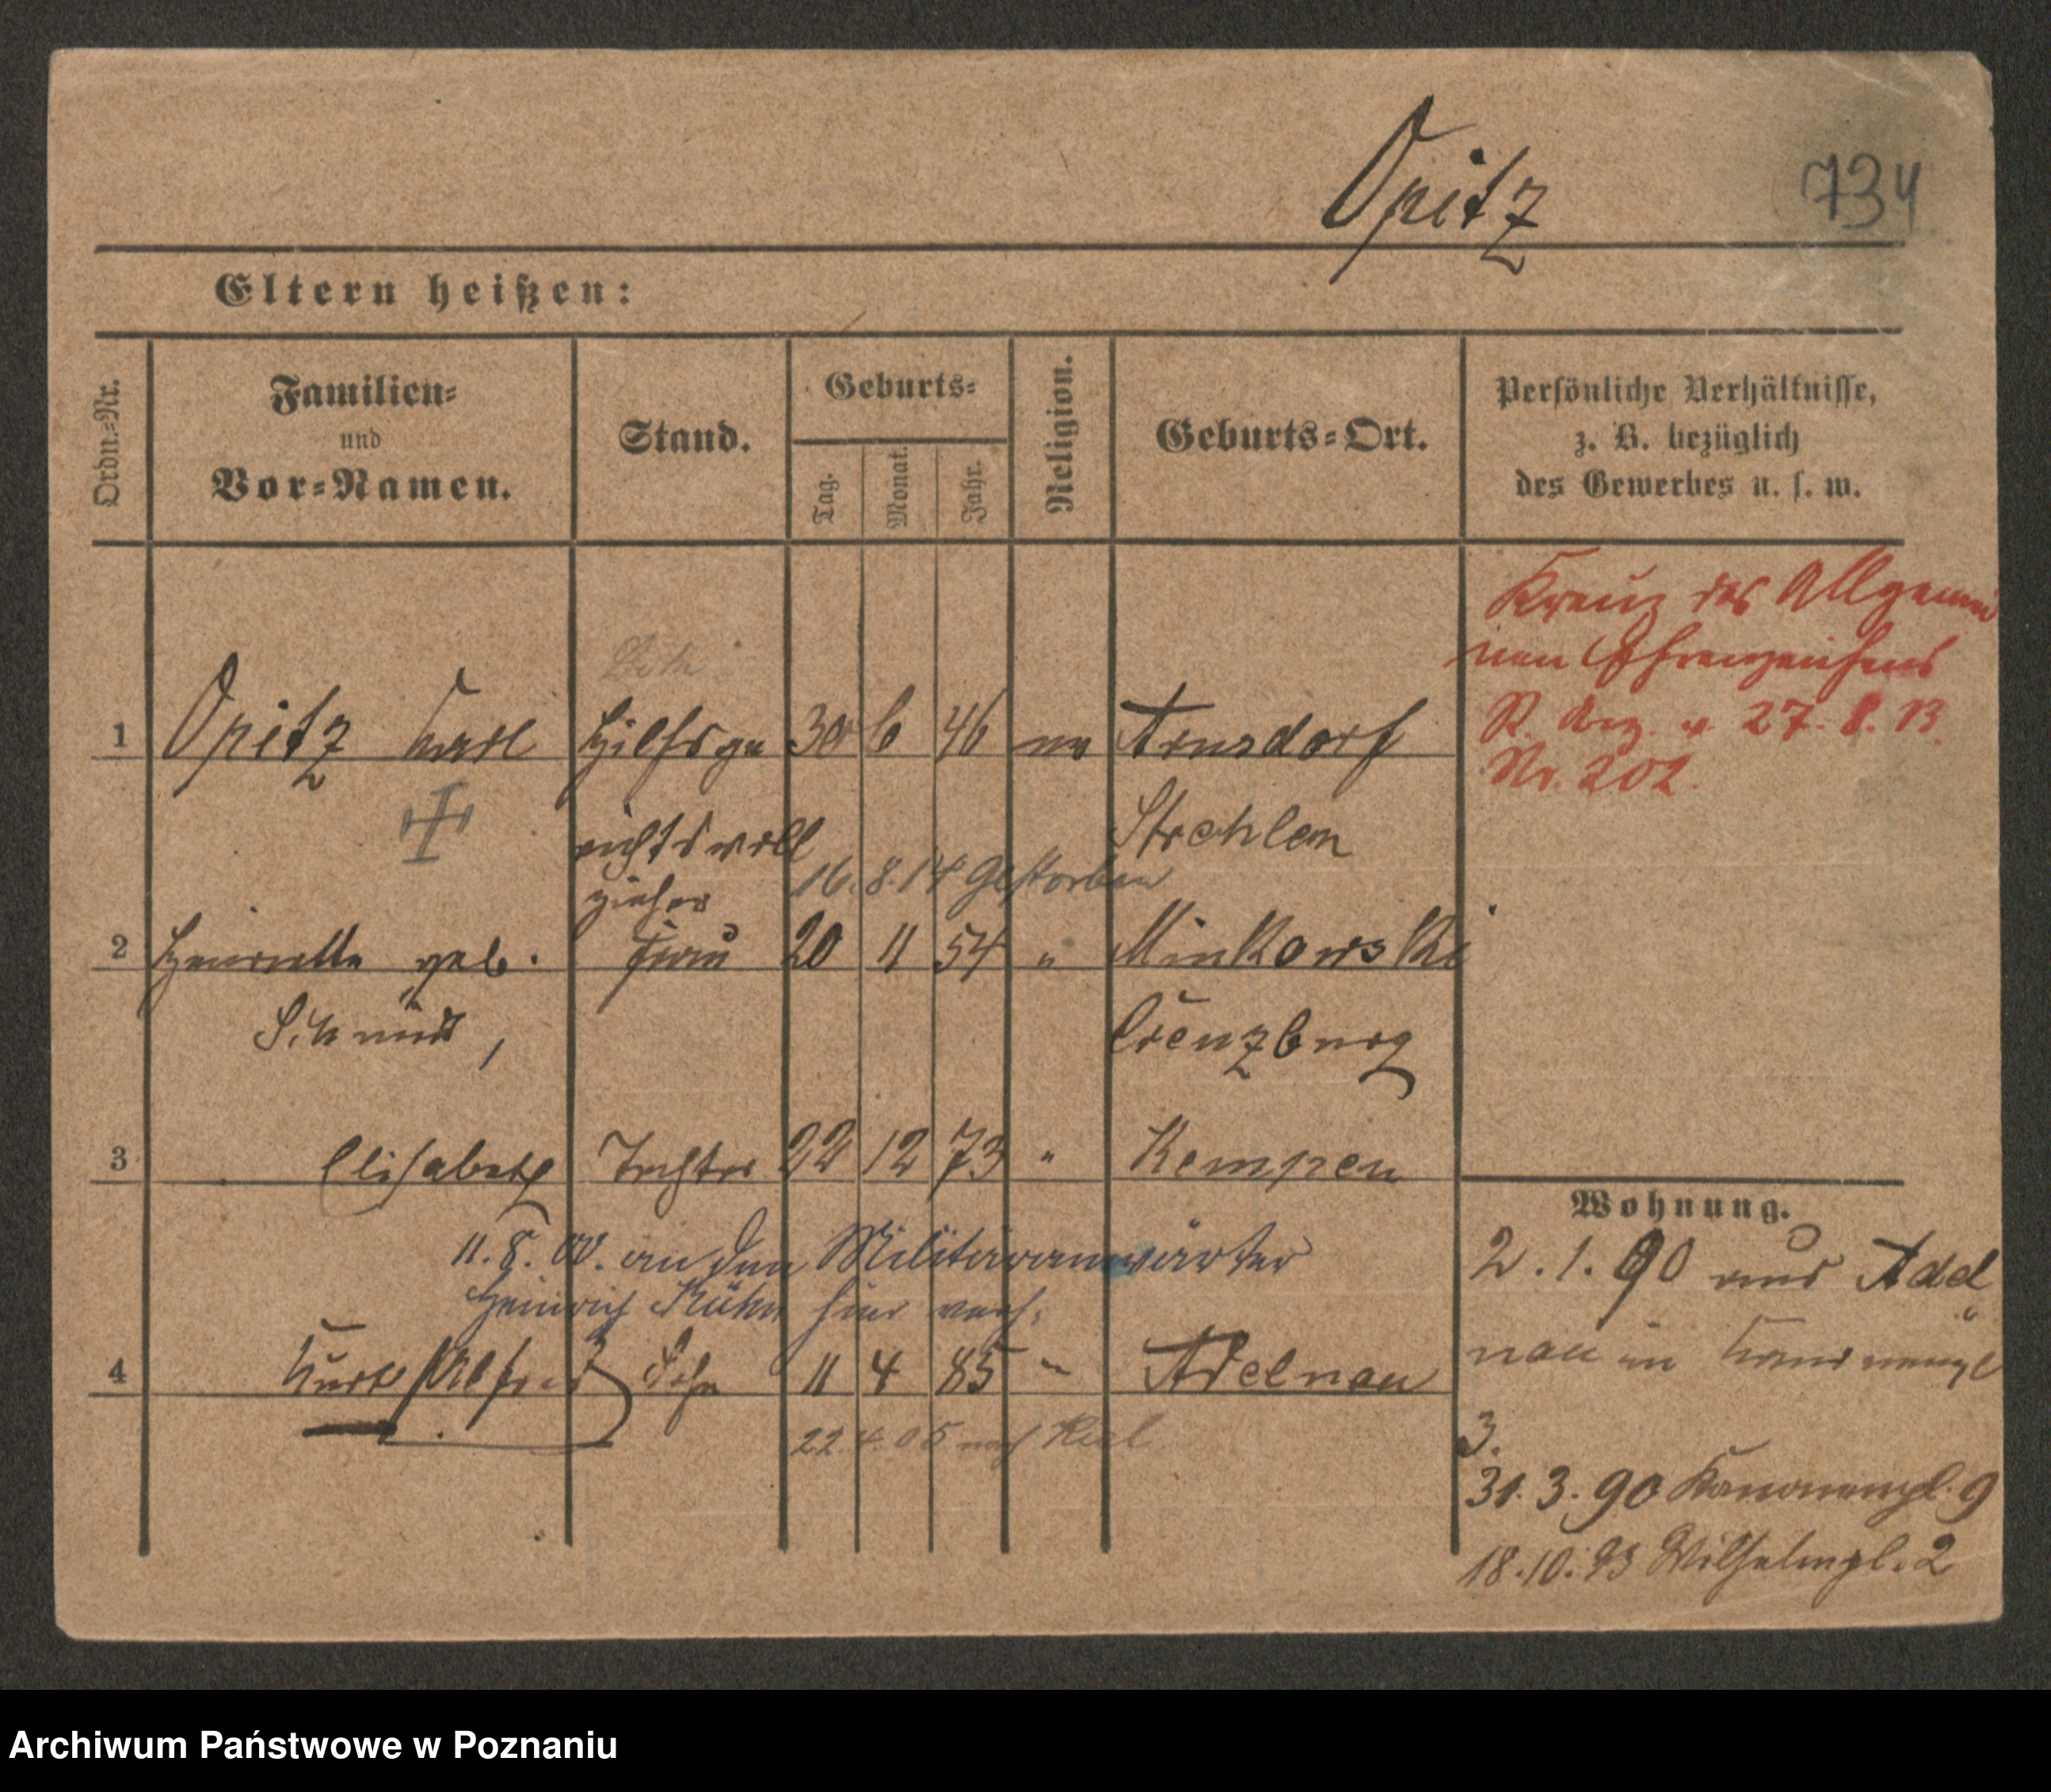 Opitz
734
Eltern heißen:
Ordn.-Nr.
Familien-
und
Vor-Namen.
Stand.
Geburts-
Tag.
Monat.
Jahr.
Religion.
Geburts-Ort.
Persönliche Verhältnisse,
z. B. bezüglich
des Gewerbes u. s. w.
Kreuz des Allgemei
nen Ehrenzeichens
v 27. 8. 13.
Nr. 202.
1 Opitz Karl Hilfsge 30 6 46 ev Arnsdorf
richtsvoll Strehlen
zieher 16. 8. 14 gestorben
2 Henriette geb. Frau 20 11 54 " Minkowski
Schmidt, Creuzburg
3 Elisabeth Tochter 22 12 73 " Kempen
11. 8. 00. an den Militäranwärter
Heinrich Kühn hier verh.
4 Kurt Alfred Sohn 11 4 85 " Adelnau
22. 4. 05 nach Kiel
Wohnung.
2. 1. 90 aus Adel
nau in
3.
31. 3. 90 Kanonenpl. 9
18. 10. 93 Wilhelmpl. 2
Archiwum Państwowe w Poznaniu